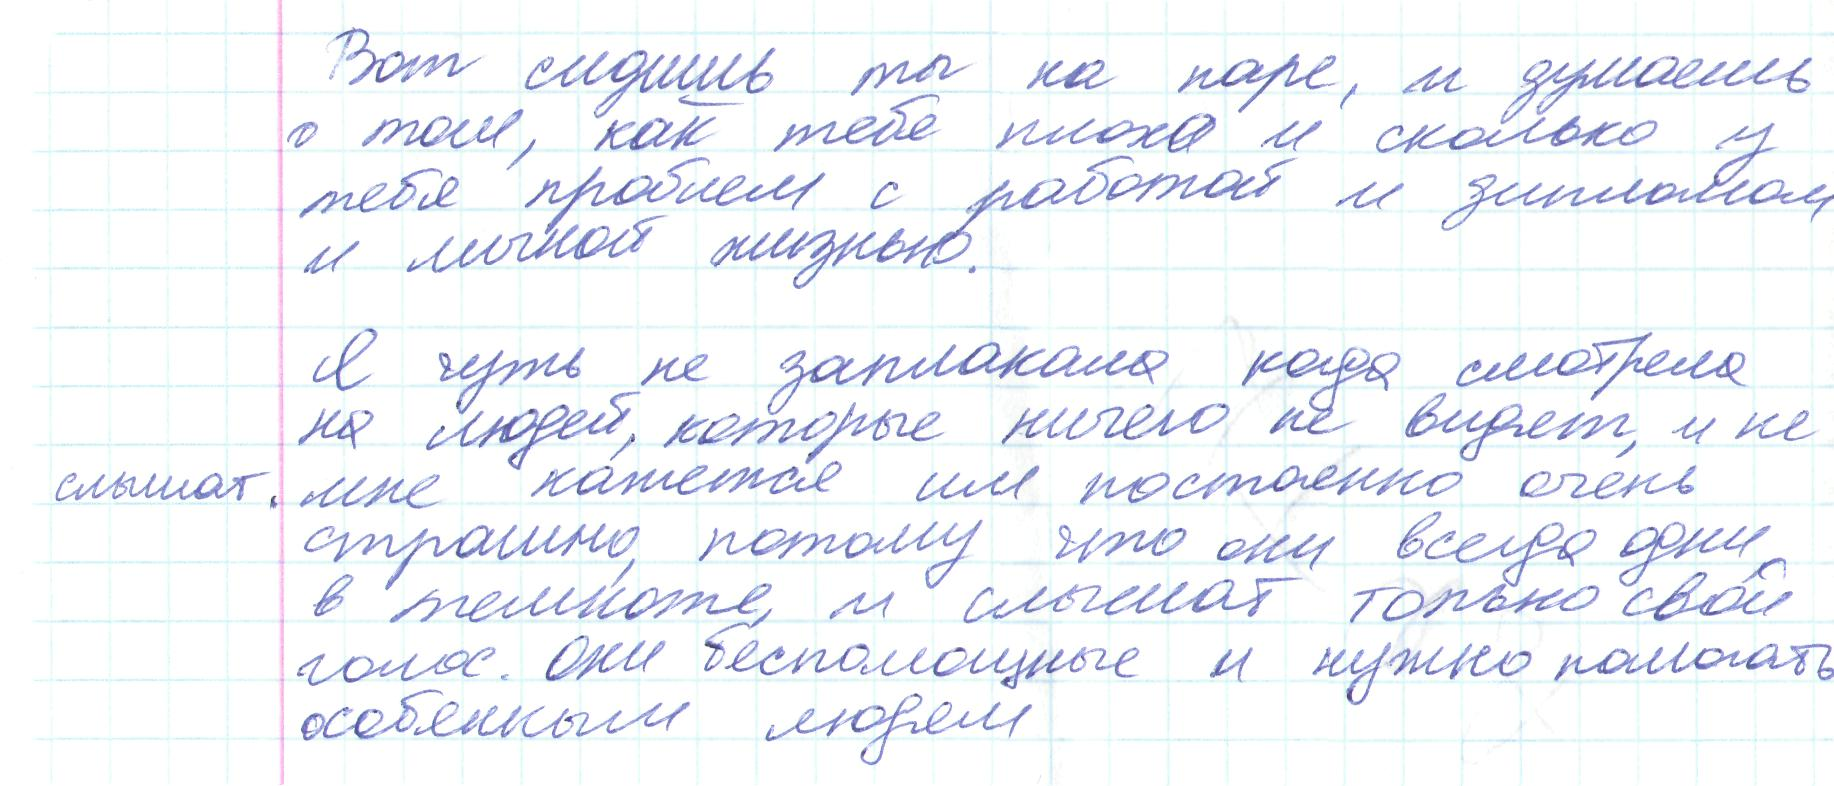 Вот сидишь ты на паре, и думаешь
о том, как тебе плохо и сколько у
тебя проблем с работой и дипломом
и личной жизнью.
Я чуть не заплакала когда смотрела
на людей, которые ничего не видят, и не
слышат. мне кажется им постоянно очень
страшно, потому что они всегда одни
в темноте, и слышат только свой
голос. Они беспомощные и нужно помогать
особенным людям